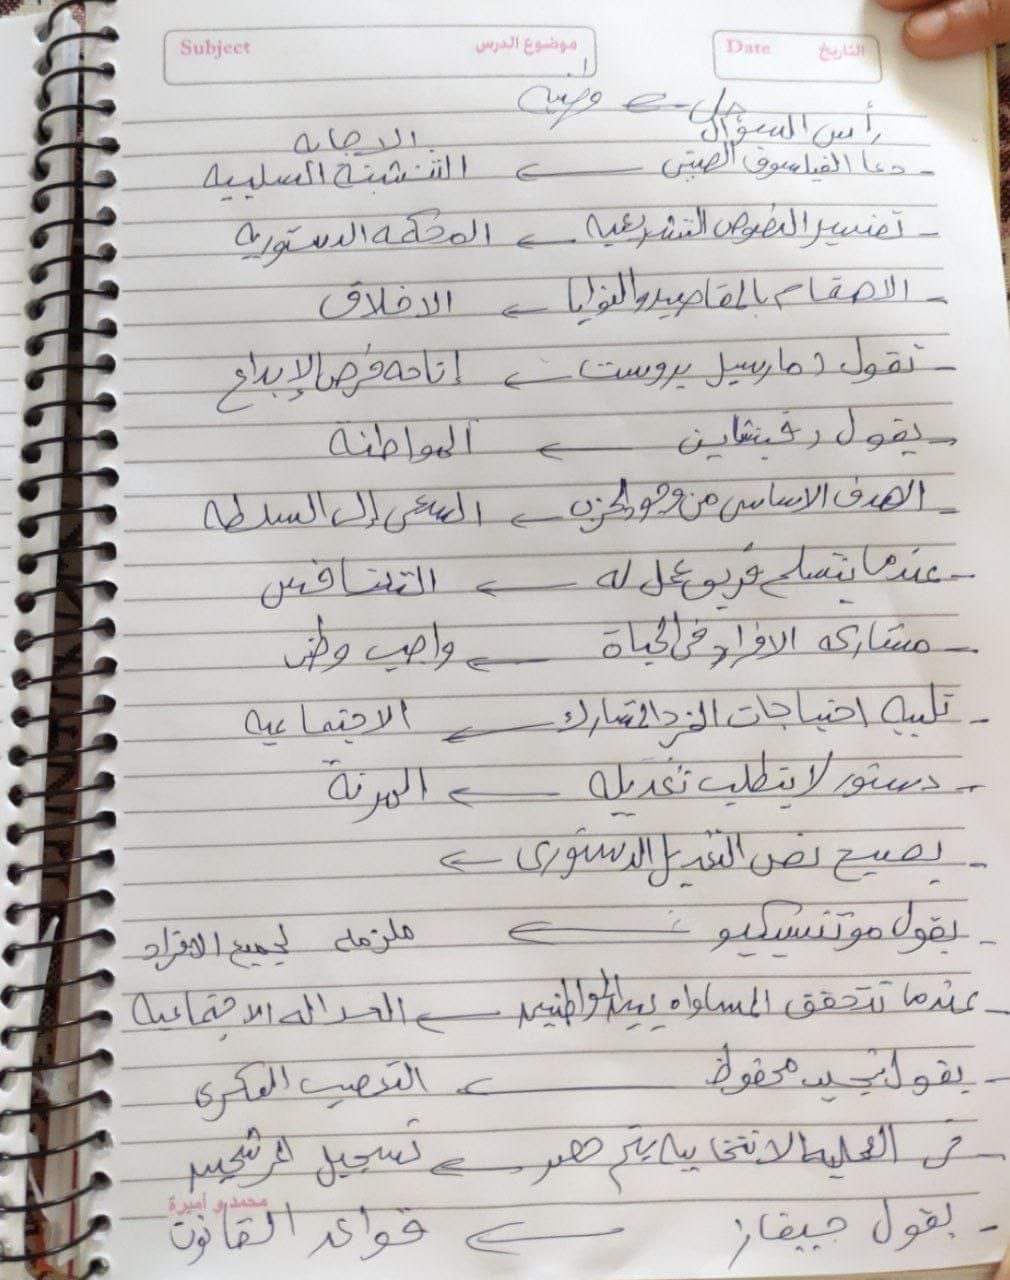 Subject موضوع الدرس
Date التاريخ
حل ← وطنية
رأس السؤال الاجابه
- دعا الفيلسوف الصيني ← التنشئة السلبيه
- تفسير النصوص التشريعيه ← المحكمه الدستوريه
- الاهتمام بالمقاصد والنوايا ← الاخلاق
- تقول (مارسيل بروست) ← إتاحه فرص الإبداع
- يقول ← المواطنة
- الهدف الاساسى من وجود الحزب ← السعى إلى السلطه
- عندما يتسلح فريق عمل له ← التنافس
- مشاركه الافراد فى الحياة ← واجب وطنى
- تلبيه احتياجات الفرد ← الاجتماعيه
- دستور لا يتطلب تعديله ← المرنة
- يصبح نص التعديل الدستورى ←
- يقول مونتسكيو ← ملزمه لجميع الافراد
- عندما تتحقق المساواه بين المواطنين ← العداله الاجتماعيه
- يقول نجيب محفوظ ← التعصب الفكرى
- فى العمليه الانتخابيه يتم حصر ← تسجيل المرشحين
محمد و أميرة
- يقول جيفارا ← قواعد القانون